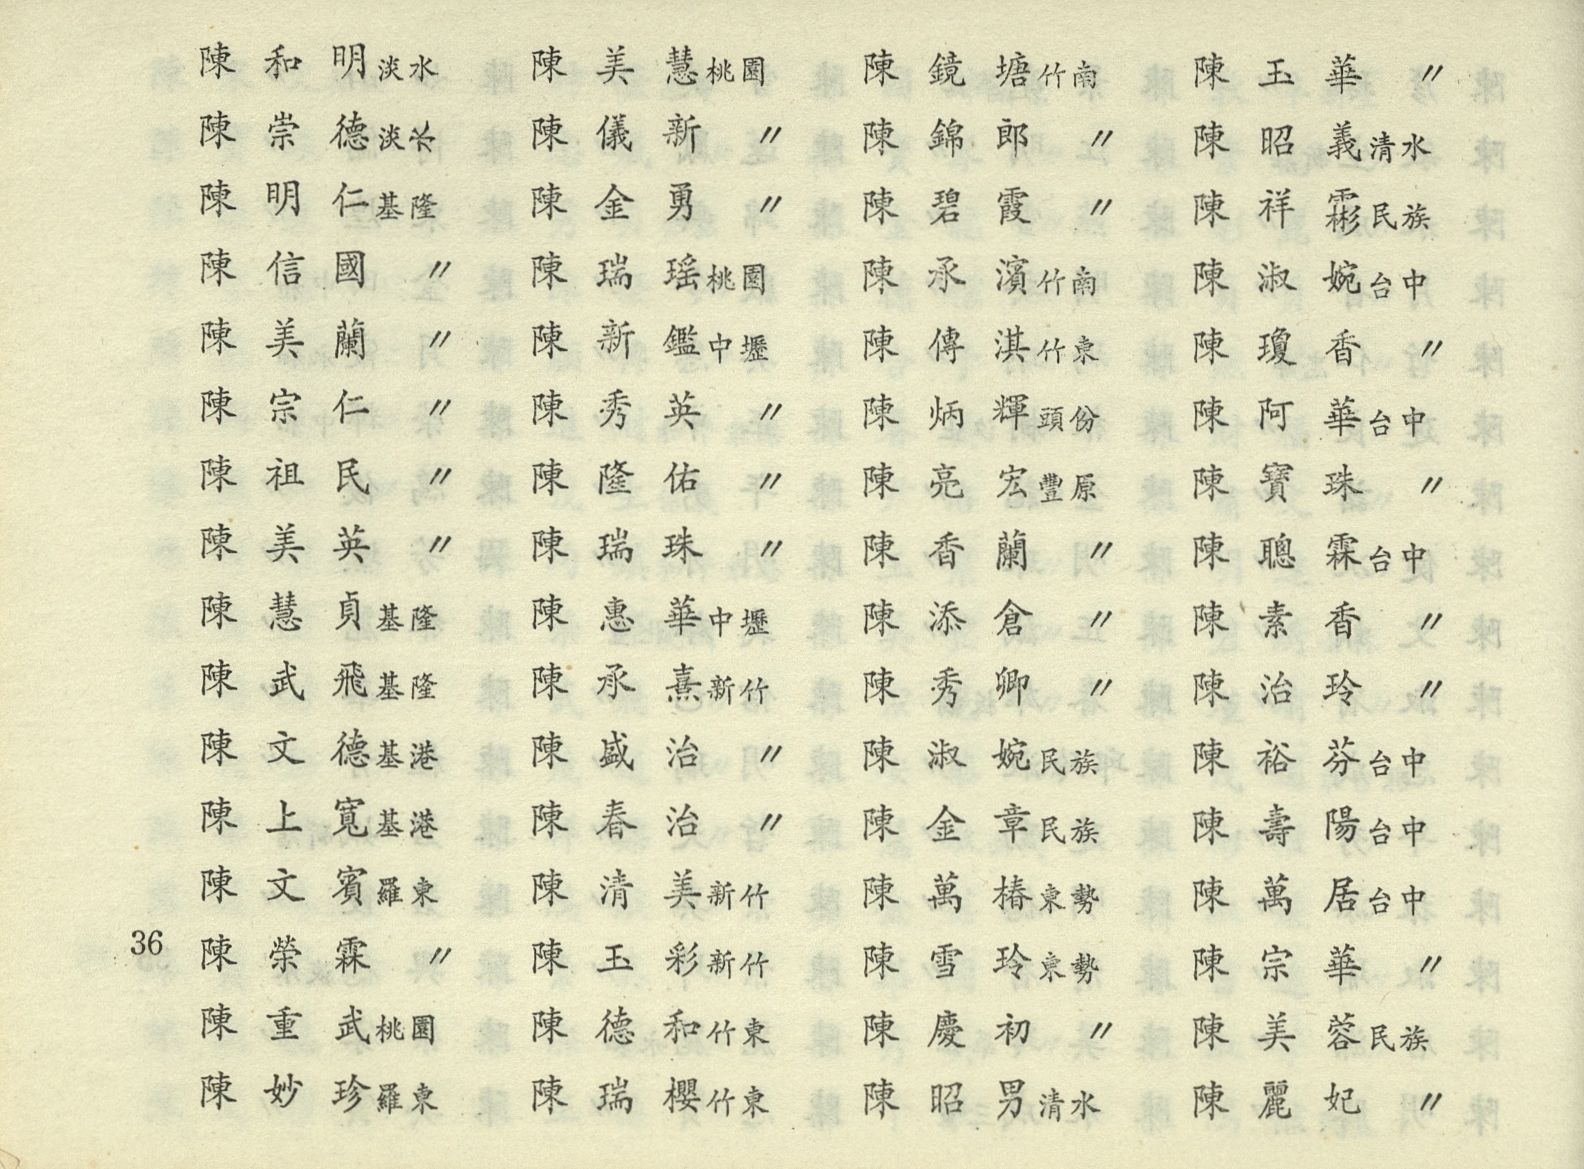 陳和明淡水
陳崇德淡水
陳明仁基隆
陳信國〃
陳美蘭〃
陳宗仁〃
陳祖民〃
陳美英〃
陳慧貞基隆
陳武飛基隆
陳文德基港
陳上寬基港
陳文賓羅東
陳榮霖〃
陳重武桃園
陳妙珍羅東
陳美慧桃園
陳儀新〃
陳金勇〃
陳瑞瑤桃園
陳新鑑中壢
陳秀英〃
陳隆佑〃
陳瑞珠〃
陳惠華中壢
陳承熹新竹
陳盛治〃
陳春治〃
陳清美新竹
陳玉彩新竹
陳德和竹東
陳瑞櫻竹東
陳鏡塘竹南
陳錦郎〃
陳碧霞〃
陳承濱竹南
陳傳淇竹東
陳炳輝頭份
陳亮宏豐原
陳香蘭〃
陳添倉〃
陳秀卿〃
陳淑婉民族
陳金章民族
陳萬椿東勢
陳雪玲東勢
陳慶初〃
陳昭男清水
陳玉華〃
陳昭義清水
陳祥霦民族
陳淑婉台中
陳瓊香〃
陳阿華台中
陳寶珠〃
陳聰霖台中
陳素香〃
陳治玲〃
陳裕芬台中
陳壽陽台中
陳萬居台中
陳宗華〃
陳美蓉民族
陳麗妃〃
36